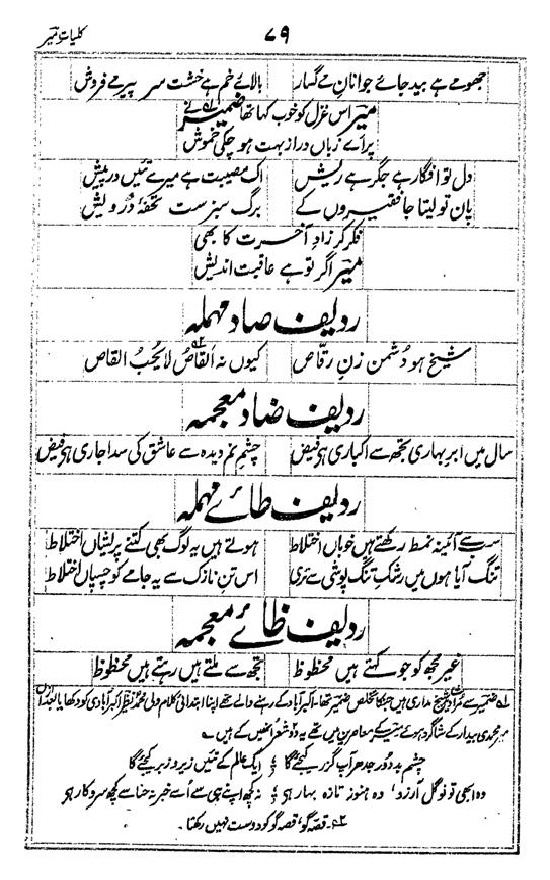 ۷۹
کلیات میر
جھومے ہے بید جائے جوانانِ مے گسار بالائے خم ہے خشت سرِ پیرِ مے فروش
میر اس غزل کو خوب کہا تھا ضمیر نے
پر اے زباں دراز بہت ہو چکی خموش
دل تو افگار ہے جگر ہے ریش اک مصیبت ہے میرے تئیں درپیش
پان تو لیتا جا فقیروں کے برگِ سبز ست تحفۂ درویش
فکر کر زادِ آخرت کا بھی
میر اگر تو ہے عاقبت اندیش
ردیف صاد مہملہ
شیخ ہو دشمن زنِ رقّاص کیوں نہ القاصُ لا یُحِبُّ القاص
ردیف ضاد معجمہ
سال میں ابرِ بہاری تجھ سے اکباری ہو فیض چشم نم دیدہ سے عاشق کی سدا جاری ہو فیض
ردیف طائے مہملہ
سب سے آئینہ نمط رکھتے ہیں خوباں اختلاط ہوتے ہیں یہ لوگ بھی کتنے پریشاں اختلاط
تنگ آیا ہوں میں رشکِ تنگ پوشی سے تری اس تنِ نازک سے یہ جامے کو چسپاں اختلاط
ردیف ظائے معجمہ
غیر مجھ کو جو کہتے ہیں محظوظ تجھ سے ملتے ہیں رہتے ہیں محظوظ
۱؎ ضمیر سے مراد شیخ مداری ہیں جنکا تخلص ضمیر تھا۔ اکبرآباد کے رہنے والے تھے اپنا ابتدائی کلام ولی محمد نظیر اکبرآبادی کو دکھایا بعد ازاں
میر محمدی بیدار کے شاگرد ہوئے میر کے معاصرین میں تھے یہ دو شعر انھیں کے ہیں۔
چشم بد دور جدھر آپ گزر کیجئے گا ایک عالم کے تئیں زیر و زبر کیجئے گا
وہ ابھی تو نو گل آرزو، وہ ہنوز تازہ بہار ہو نہ کچھ اپنے ہی سے اُسے خبر نہ حنا سے کچھ سروکار ہو
۲؎ قصّہ گو، قصہ گو کو دوست نہیں رکھتا۔